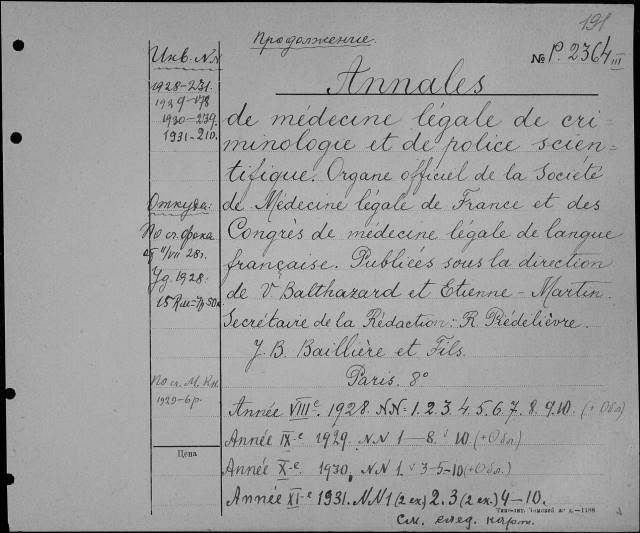 191
Продолжение.
№ P. 2364 III
Инв. NN
1928-231.
1929-178
1930-239.
1931-210.
Откуда:
По сч. фрка
от 11/VII 28г.
Уд. 1928.
По сч. М. Кн.
1929-6р.
Цена
Annales
de médecine légale de cri-
minologie et de police scien-
tifique. Organe officiel de la Société
de Médecine légale de France et des
Congrès de médecine légale de langue
française. Publiées sous la direction
de V. Balthazard et Etienne-Martin.
Secrétaire de la Rédaction: R. Piédelièvre.
J. B. Baillière et Fils.
Paris. 8°
Année VIII-e. 1928. NN: 1. 2. 3. 4. 5. 6. 7. 8. 9. 10. (+ Обл)
Année IX-e 1929. NN 1—8. 10. (+Обл.)
Année X-e. 1930, NN 1. 3-5-10 (+Обл.)
Année XI-e 1931. NN 1 (2 ex) 2. 3 (2 ex.) 4—10.
См. след. карт.